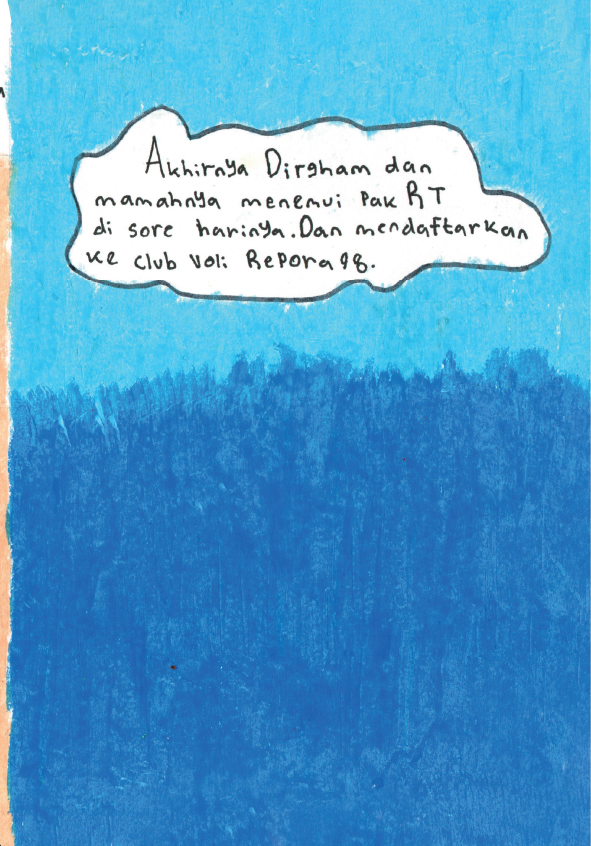 Akhirnya Dirgham dan
mamahnya menemui Pak RT
di sore harinya. Dan mendaftarkan
ke club Voli Repora 98.